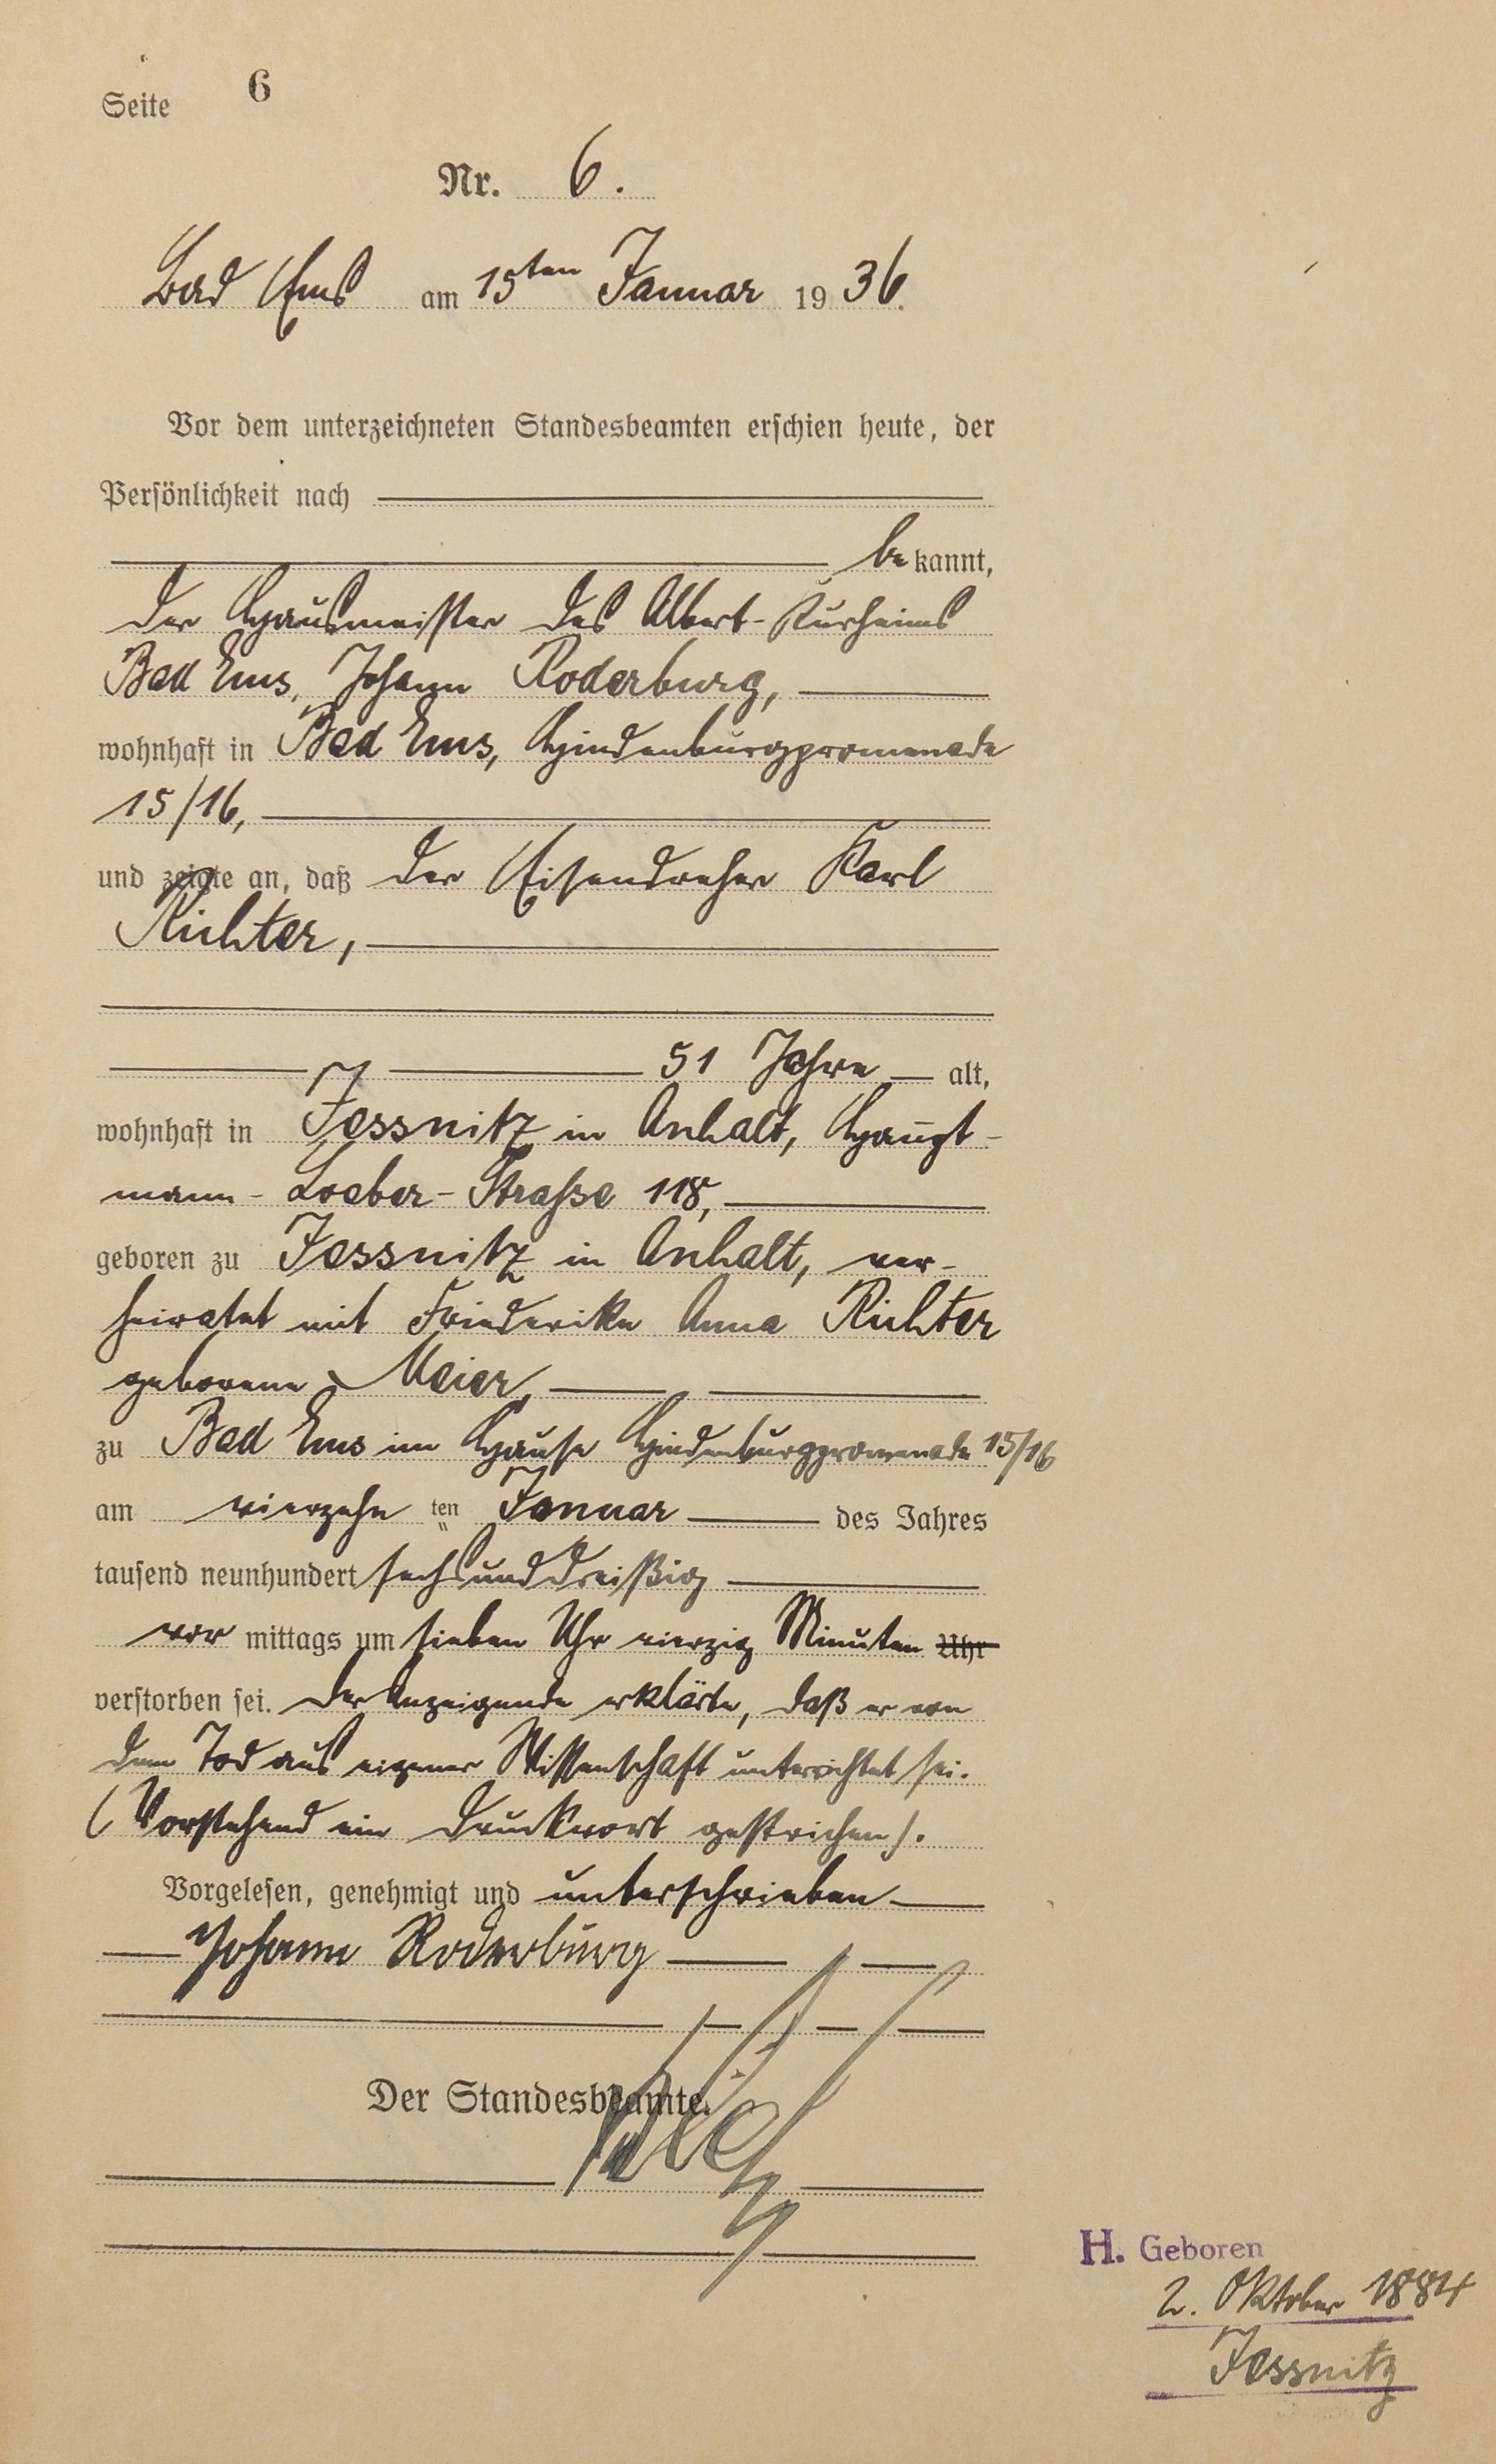 Seite 6
Nr. 6.
Bad Ems am 15ten Januar 1936.
Vor dem unterzeichneten Standesbeamten erschien heute, der
Persönlichkeit nach
bekannt,
der Hausmeister des Albert-Kurheims
Bad Ems, Johann Roderburg,
wohnhaft in Bad Ems, Hindenburgpromenade
15/16,
und zeigte an, daß der Eisendreher Karl
Richter,
51 Jahre alt,
wohnhaft in Jessnitz in Anhalt, Haupt-
mann-Loeber-Strasse 118,
geboren zu Jessnitz in Anhalt, ver-
heiratet mit Friederike Anna Richter
geborene Meier,
zu Bad Ems im Hause Hindenburgpromenade 15/16
am vierzehn ten Januar des Jahres
tausend neunhundert sechsunddreißig
vor mittags um sieben Uhr vierzig Minuten Uhr
verstorben sei. Der Anzeigende erklärte, daß er von
dem Tod aus eigener Wissenschaft unterrichtet sei.
(Vorstehend ein Druckwort gestrichen).
Vorgelesen, genehmigt und unterschrieben
Johann Roderburg
Der Standesbeamte.
H. Geboren
2. Oktober 1884
Jessnitz